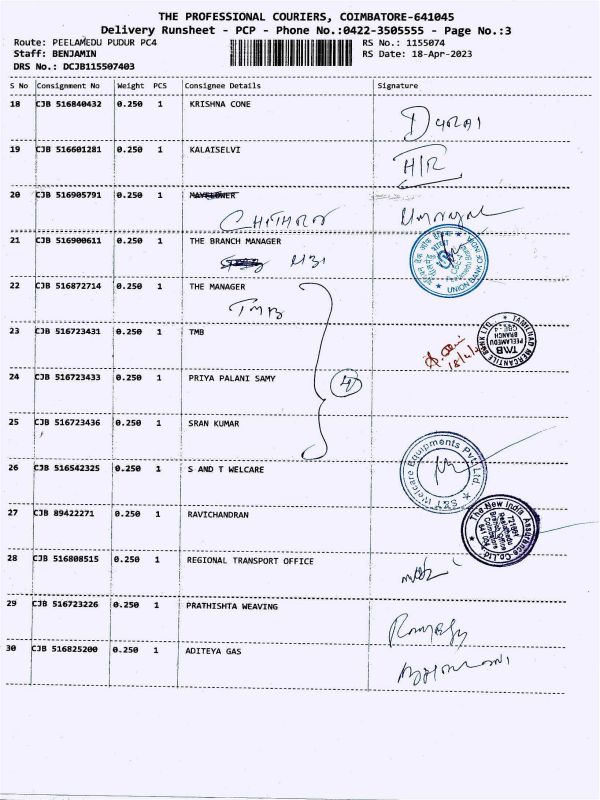 THE PROFESSIONAL COURIERS, COIMBATORE-641045
Delivery Runsheet - PCP - Phone No.:0422-3505555 - Page No.:3
Route: PEELAMEDU PUDUR PC4 RS No.: 1155074
Staff: BENJAMIN RS Date: 18-Apr-2023
DRS No.: DCJB115507403
S No Consignment No Weight PCS Consignee Details Signature
18 CJB 516840432 0.250 1 KRISHNA CONE
DURAI
19 CJB 516601281 0.250 1 KALAISELVI
H/R
20 CJB 516905791 0.250 1 MAYFLOWER
CHITHRA
21 CJB 516900611 0.250 1 THE BRANCH MANAGER
UNION BANK OF INDIA
22 CJB 516872714 0.250 1 THE MANAGER
TMB
23 CJB 516723431 0.250 1 TMB
TAMILNAD MERCANTILE BANK LTD
TMB
PEELAMEDU
BRANCH
CBE-4
24 CJB 516723433 0.250 1 PRIYA PALANI SAMY
4
25 CJB 516723436 0.250 1 SRAN KUMAR
26 CJB 516542325 0.250 1 S AND T WELCARE
S&T Welcare Equipments Pvt. Ltd.
27 CJB 89422271 0.250 1 RAVICHANDRAN
The New India Assurance Co. Ltd.
28 CJB 516808515 0.250 1 REGIONAL TRANSPORT OFFICE
29 CJB 516723226 0.250 1 PRATHISHTA WEAVING
Ramesh
30 CJB 516825200 0.250 1 ADITEYA GAS